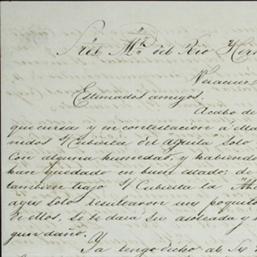 Sres. Mr. del Rio Her
Veracruz
Estimados amigos.
Acabo de
que cursa y en contestacion a
nidos S/ Cubierta del aguila solo
con alguna humedad, y habiendo
han quedado en buen estado: de
tambien trajo S/ Cubierta la
ayer solo resultaron un poquito
de ellos, se le dará su asoleada y
gun daño.
Ya tengo dicho al Sr.